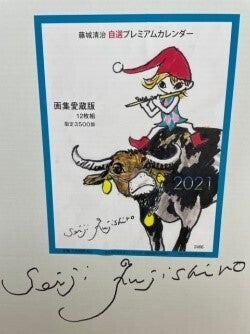 藤城清治 自選プレミアムカレンダー
画集愛蔵版
12枚組
限定3500部
2021
Seiji Fujishiro
Seiji Fujishiro